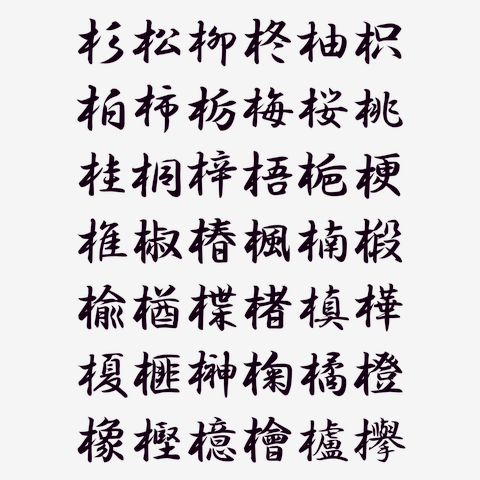 杉松柳柊柚枳
柏柿栃梅桜桃
桂桐梓梧梔梗
椎椒椿楓楠椴
楡楢楪楮槙樺
榎榧榊椈橘橙
橡樫檍檜櫨欅